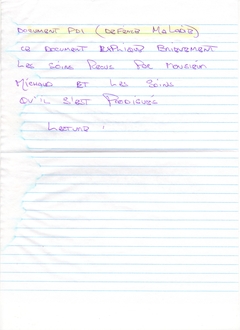 DOCUMENT PDI (DEFENCE MALADIE)
CE DOCUMENT EXPLIQUE BRIEVEMENT
LES SOINS RECUS PAR MONSIEUR
MICHAUD ET LES SOINS
QU'IL S'EST PRODIGUÉS
LECTURE !